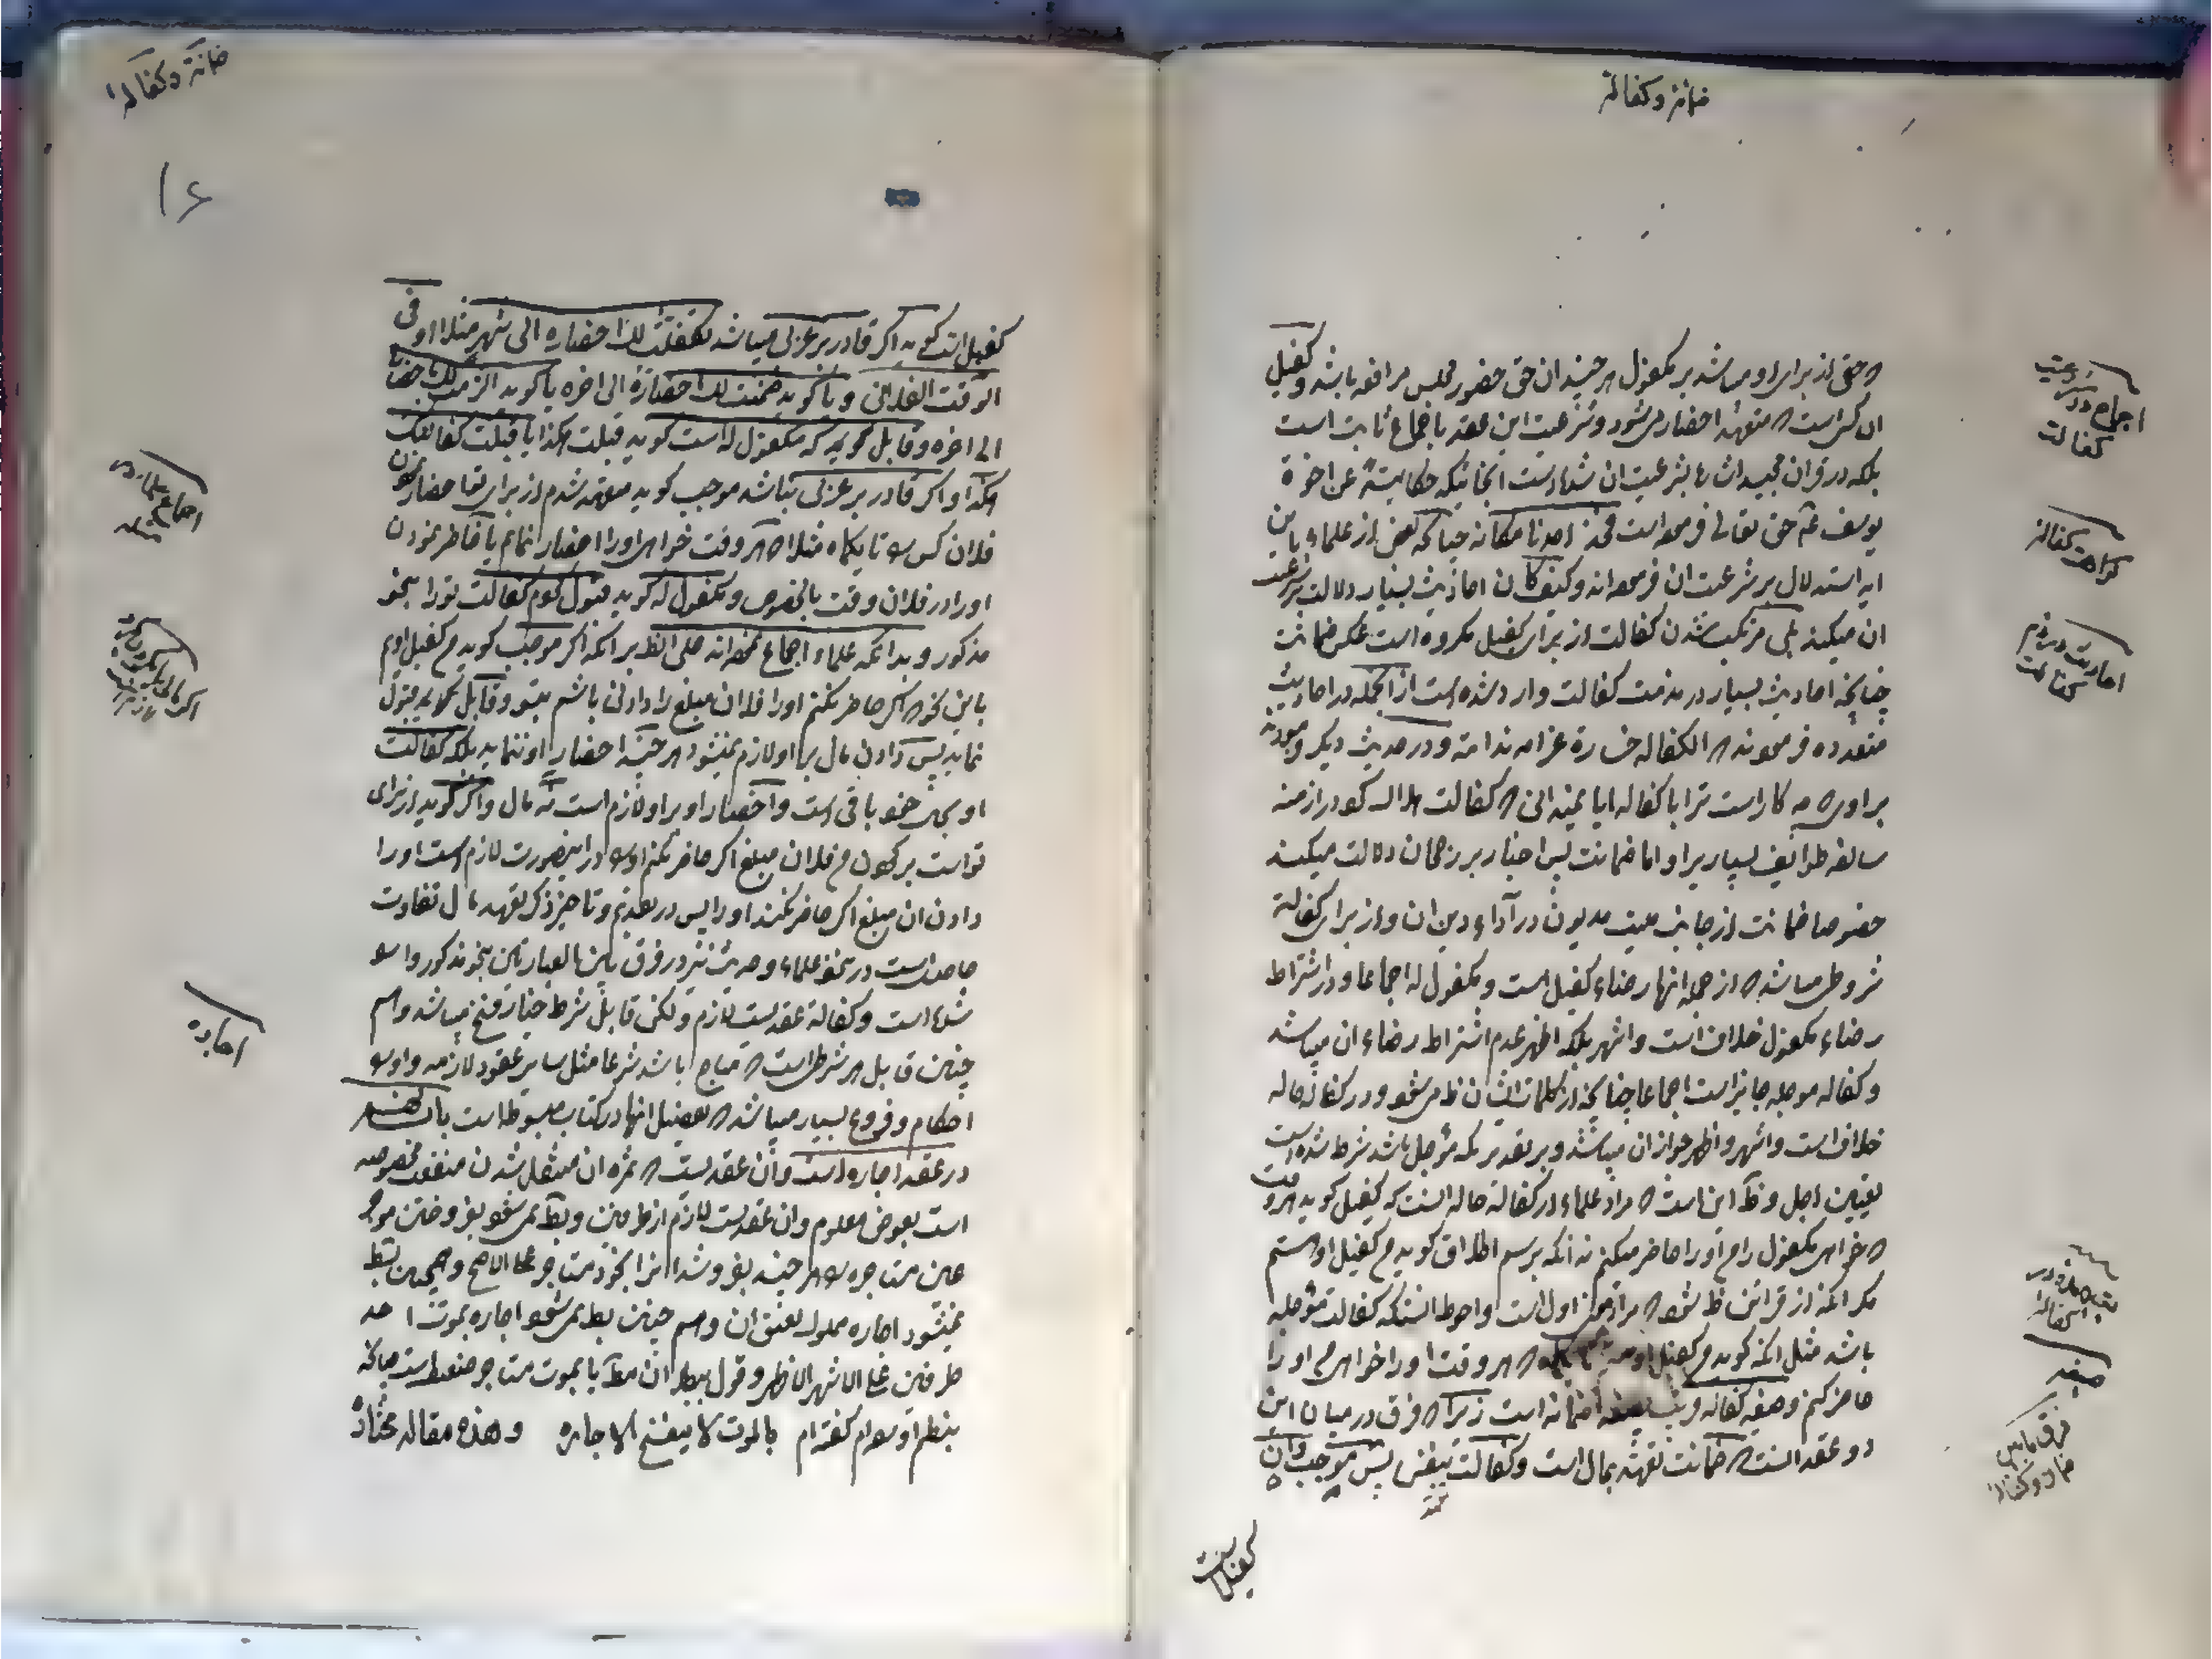 ضمانة و کفالة
که حق از برای او میباشد بر مکفول هر چند ان حق حضور مجلس مرافعه باشد و کفیل
ان کس است که متعهد احضار میشود و شرعیت این عقد باجماع ثابت است
بلکه در قران مجید اشاره بشرعیت ان شده است انجائیکه حکایتة عن اخوة
یوسف حق تعالی فرموده است فخذ احدنا مکانه چنانکه بعض از علماء باین
ایه استدلال بر شرعیت ان فرموده اند و کیف کان احادیث بسیار دلالت بر شرعیت
ان میکند بلی مرتکب شدن کفالت از برای کفیل مکروه است بعکس ضمانت
چنانچه احادیث بسیار در مذمت کفالت وارد شده است از انجمله در احادیث
متعدده فرموده اند که الکفاله خسارة غرامه ندامة و در حدیث دیگر فرموده
براوی چه کار است ترا با کفاله ایا نمیدانی که کفالت هلاک کرد در ازمنه
سالفه طوایف بسیار را و اما ضمانت پس اخبار بر رجحان دلالت میکند
خصوصا ضمانت از جانب میت مدیون در آداء دین ان و از برای کفالة
شروطی میباشد که از جمله انها رضاء کفیل است و مکفول له اجماعا و در اشتراط
رضاء مکفول خلاف است و اشهر بلکه اظهر عدم اشتراط رضاء ان میباشد
و کفاله موجله جایز است اجماعا چنانچه از کلمات ایشان ظ میشود و در کفاله حاله
خلاف است و اشهر و اظهر جواز ان میباشد و بر تقدیر که مؤجل باشد شرط شده است
تعیین اجل و ظ این است که مراد علماء از کفالة حاله انست که کفیل کوید هر وقت
که خواهی مکفول را من او را حاضر میکنم نه انکه برسم اطلاق کوید من کفیل او هستم
مکر انکه از قرائن ظ شود که مراد همان اول است و احوط انست که کفالت مؤجله
باشد مثل انکه کوید من کفیل او هر وقت او را خواهی من او را
حاضر کنم و صیغه کفاله قریب بصیغه ضمانه است زیرا که فرق در میان این
دو عقد انست که ضمانت تعهد بمال است و کفالت بنفس پس موجب ان
کفیل است
اجماع در شرعیت
کفالت
کراهت کفالة
احادیث در ذم
کفالت
کفالة
صیغه
فرق مابین
ضمان و کفالة
ضمانة و کفالة
۱۶
کفیل است کوید اکر قادر بر عربی میباشد تکفلت لک احضاره الی شهر مثلا او فی
الوقت الفلانی و یا کوید ضمنت لک احضاره الی اخره یا کوید الزمت لک احضاره
الی اخره و قابل کوید که مکفول له است کوید قبلت هکذا یا قبلت کفالتک
هکذا و اکر قادر بر عربی نباشد موجب کوید متعهد شدم از برای تو احضار نمودن
فلان کس را تا یکماه مثلا که هر وقت خواهی او را احضار نمایم یا حاضر نمودن
او را در فلان وقت بالخصوص و مکفول له کوید قبول کردم کفالت تو را بنحو
مذکور و بدانکه علماء اجماع نموده اند علی الظ بر انکه اکر موجب کوید من کفیل اویم
باین نحو که اکر حاضر نکنم او را فلان مبلغ را دادنی باشم بتو و قابل کلام قبول
نماید پس دادن مال بر او لازم نمیشود هر چند احضار او ننماید بلکه کفالت
او بحال خود باقی است و احضار او بر او لازم است نه مال و اکر کوید از برای
تو است بر کردن من فلان مبلغ اکر حاضر نکنم او را در اینصورت لازم است او را
دادن ان مبلغ اکر حاضر نکند او را پس در تقدیم و تاخیر ذکر تعهد مال تفاوت
حاصل است در نحو علماء و حدیث نیز در فرق بین العبارتین بنحو مذکور وارد
شده است و کفالة عقدیست لازم ولکن قابل شرط خیار فسخ میباشد و هم
چنین قابل هر شرطی است که مباح باشد شرعا مثل سایر عقود لازمه و او را
احکام و فروع بسیار میباشد که تفصیل انها در کتاب مبسوطه است باب
در عقد اجاره است و ان عقدیست که ثمره ان منتقل شدن منفعت مخصوصه
است بعوض معلوم و ان عقدیست لازم از طرفین و بط نمیشود بفروختن موجر
عین مستاجره را هر چند بفروشد انرا بخود مستاجر علی الاصح و همچنین بط
نمیشود اجاره مملوک بعتق ان و هم چنین بط نمیشود اجاره بموت احد
طرفین علی الاشهر الاظهر و قول ببطلان ان مط یا بموت مستاجر ضعیف است چنانکه
بنظم اورده ام کفته ام بالموت لا ینفسخ الاجاره و هذه مقاله مختاره
اجاره